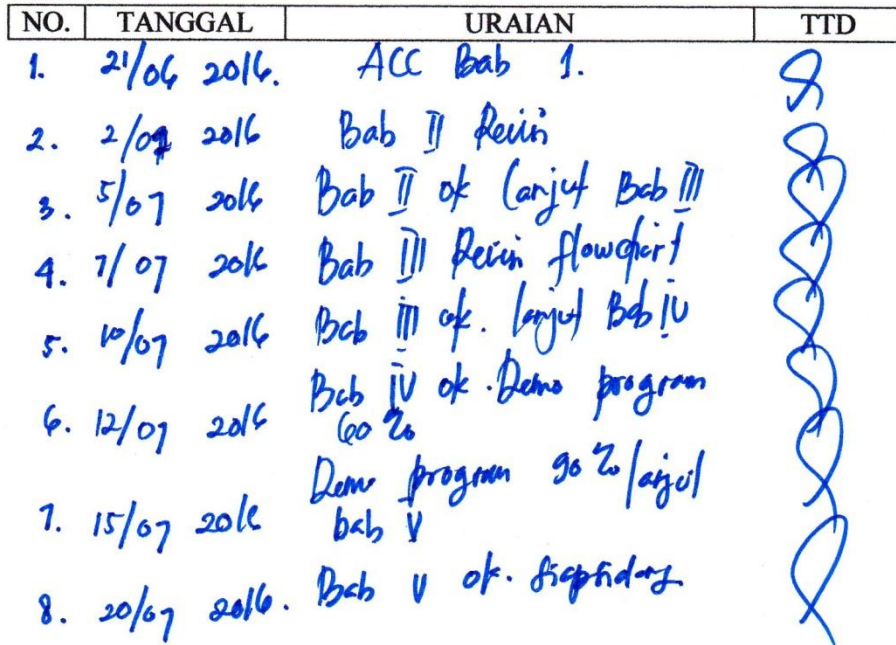 NO. TANGGAL URAIAN TTD
1. 21/06 2016. ACC Bab 1.
2. 2/07 2016 Bab II Revisi
3. 5/07 2016 Bab II ok lanjut Bab III
4. 7/07 2016 Bab III Revisi flowchart
5. 10/07 2016 Bab III ok. lanjut Bab IV
Bab IV ok. Demo program
6. 12/07 2016 60%
Demo program 90% lanjut
7. 15/07 2016 bab V
8. 20/07 2016. Bab V ok. siap sidang